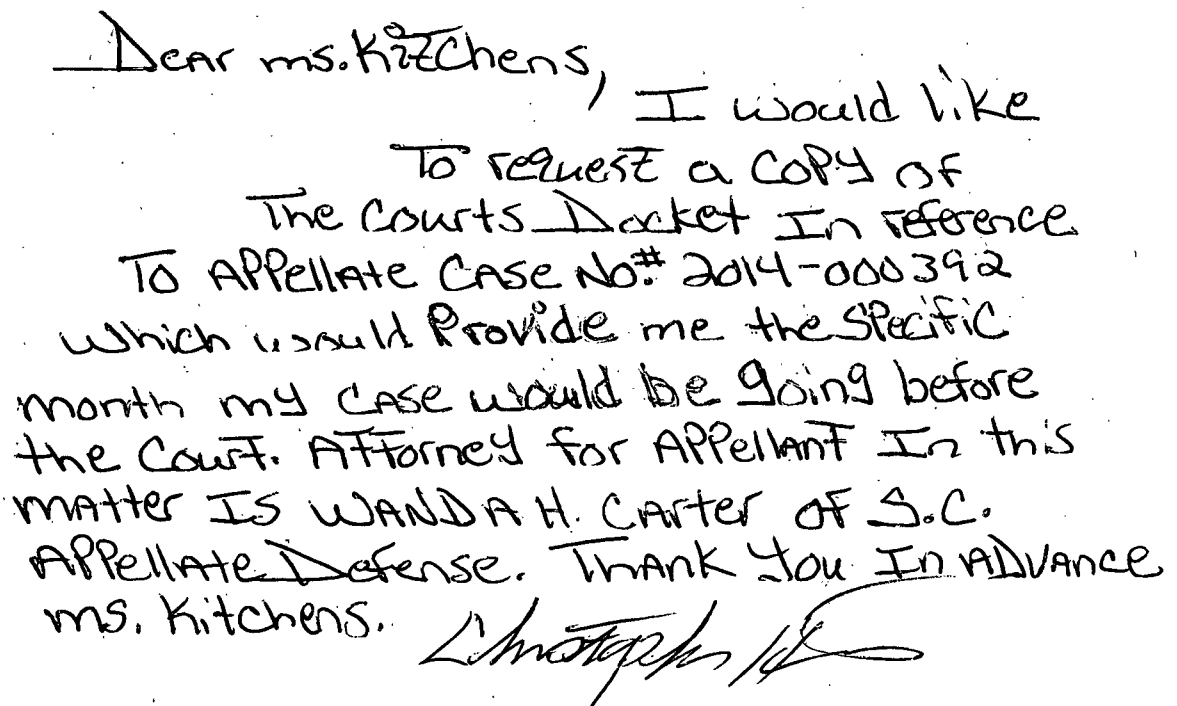 Dear ms. Kitchens,
I would like
To request a copy of
The Courts Docket In reference
To Appellate Case No.# 2014-000392
which would Provide me the Specific
month my case would be going before
the Court. Attorney for Appellant In this
matter Is WANDA H. Carter of S.C.
Appellate Defense. Thank You In Advance
ms. Kitchens.
Christopher